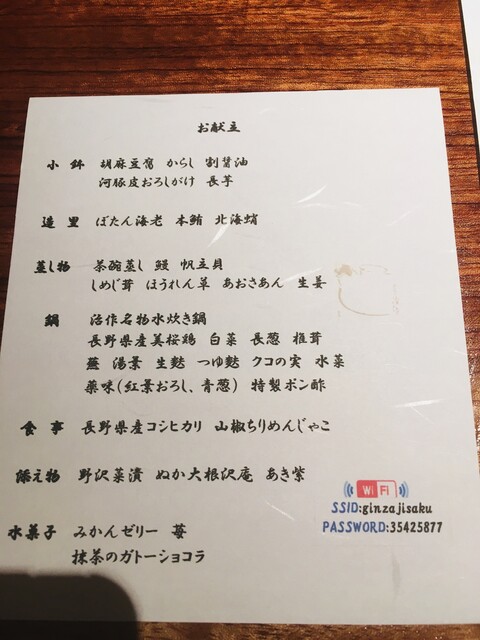 お献立
小鉢 胡麻豆腐 からし 割醤油
河豚皮おろしがけ 長芋
造里 ぼたん海老 本鮪 北海蛸
蒸し物 茶碗蒸し 鰻 帆立貝
しめじ茸 ほうれん草 あおさあん 生姜
鍋 治作名物水炊き鍋
長野県産美桜鶏 白菜 長葱 椎茸
蕪 湯葉 生麩 つゆ麩 クコの実 水菜
薬味(紅葉おろし、青葱) 特製ポン酢
食事 長野県産コシヒカリ 山椒ちりめんじゃこ
添え物 野沢菜漬 ぬか大根沢庵 あき紫
WiFi
SSID:ginzajisaku
PASSWORD:35425877
水菓子 みかんゼリー 苺
抹茶のガトーショコラ